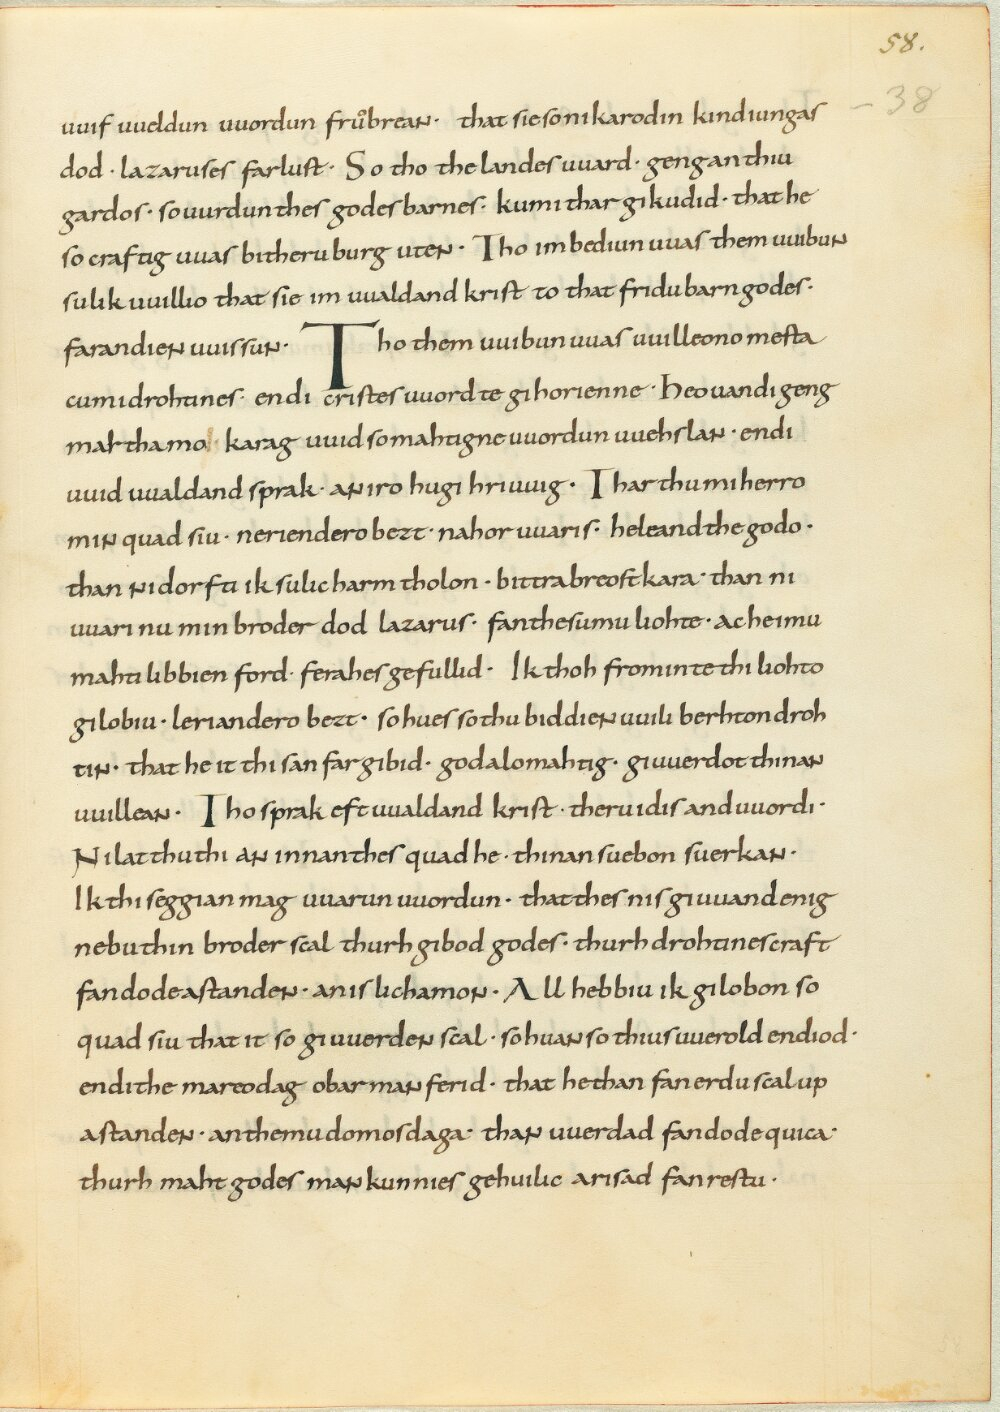 58.
- 38
uuif uueldun uuordun fruobrean · that sie so ni karodin kindiungas
dod · lazaruses farlust · So tho the landes uuard · gengan thiu
gardos · so uurdun thes godes barnes · kumi thar gikudid · that he
so craftig uuas bi theru burg uten · Tho im bediun uuas them uuibun
sulik uuillio that sie im uualdand krist to that fridubarn godes ·
farandien uuissun · Tho them uuibun uuas uuilleono mesta
cumi drohtines · endi cristes uuord te gihorienne · Heouandi geng
martha mo karag uuid so mahtigne uuordun uuehslan · endi
uuid uualdand sprak · an iro hugi hriuuig · Thar thu mi herro
min quad siu · neriendero bezt · nahor uuaris · heleand the godo ·
than ni dorfti ik sulic harm tholon · bittra breostkara · than ni
uuari nu min broder dod lazarus · fan thesumu liohte · ac he imu
mahti libbien ford · ferahes gefullid · Ik thoh fro min te thi liohto
gilobiu · leriandero bezt · so hues so thu biddien uuili berhton droh
tin · that he it thi san fargibid · god alomahtig · giuuerdot thinan
uuillean · Tho sprak eft uualdand krist · theru idis anduuordi ·
Ni lat thu thi an innan thes quad he · thinan sebon suerkan ·
Ik thi seggian mag uuarun uuordun · that thes nis giuuand enig
nebu thin broder scal thurh gibod godes · thurh drohtines craft
fan dode astanden · an is lichamon · All hebbiu ik gilobon so
quad siu that it so giuuerden scal · so huan so thius uuerold endiod ·
endi the mareo dag obar man ferid · that he than fan erdu scal up
astanden · an themu domos daga · than uuerdad fan dode quica ·
thurh maht godes mankunnies gehuilic arisad fan restu ·